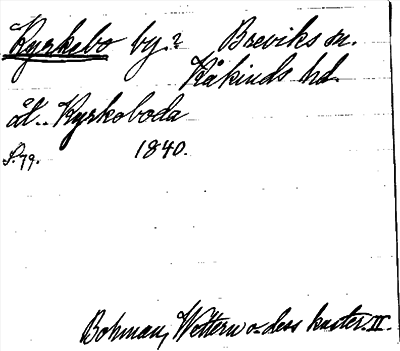 Kyrkebo by.? Breviks sn.
Kåkinds hd.
ål.. Kyrkoboda
S. 79. 1840.
Bohman, Wettern o. dess kuster. II.